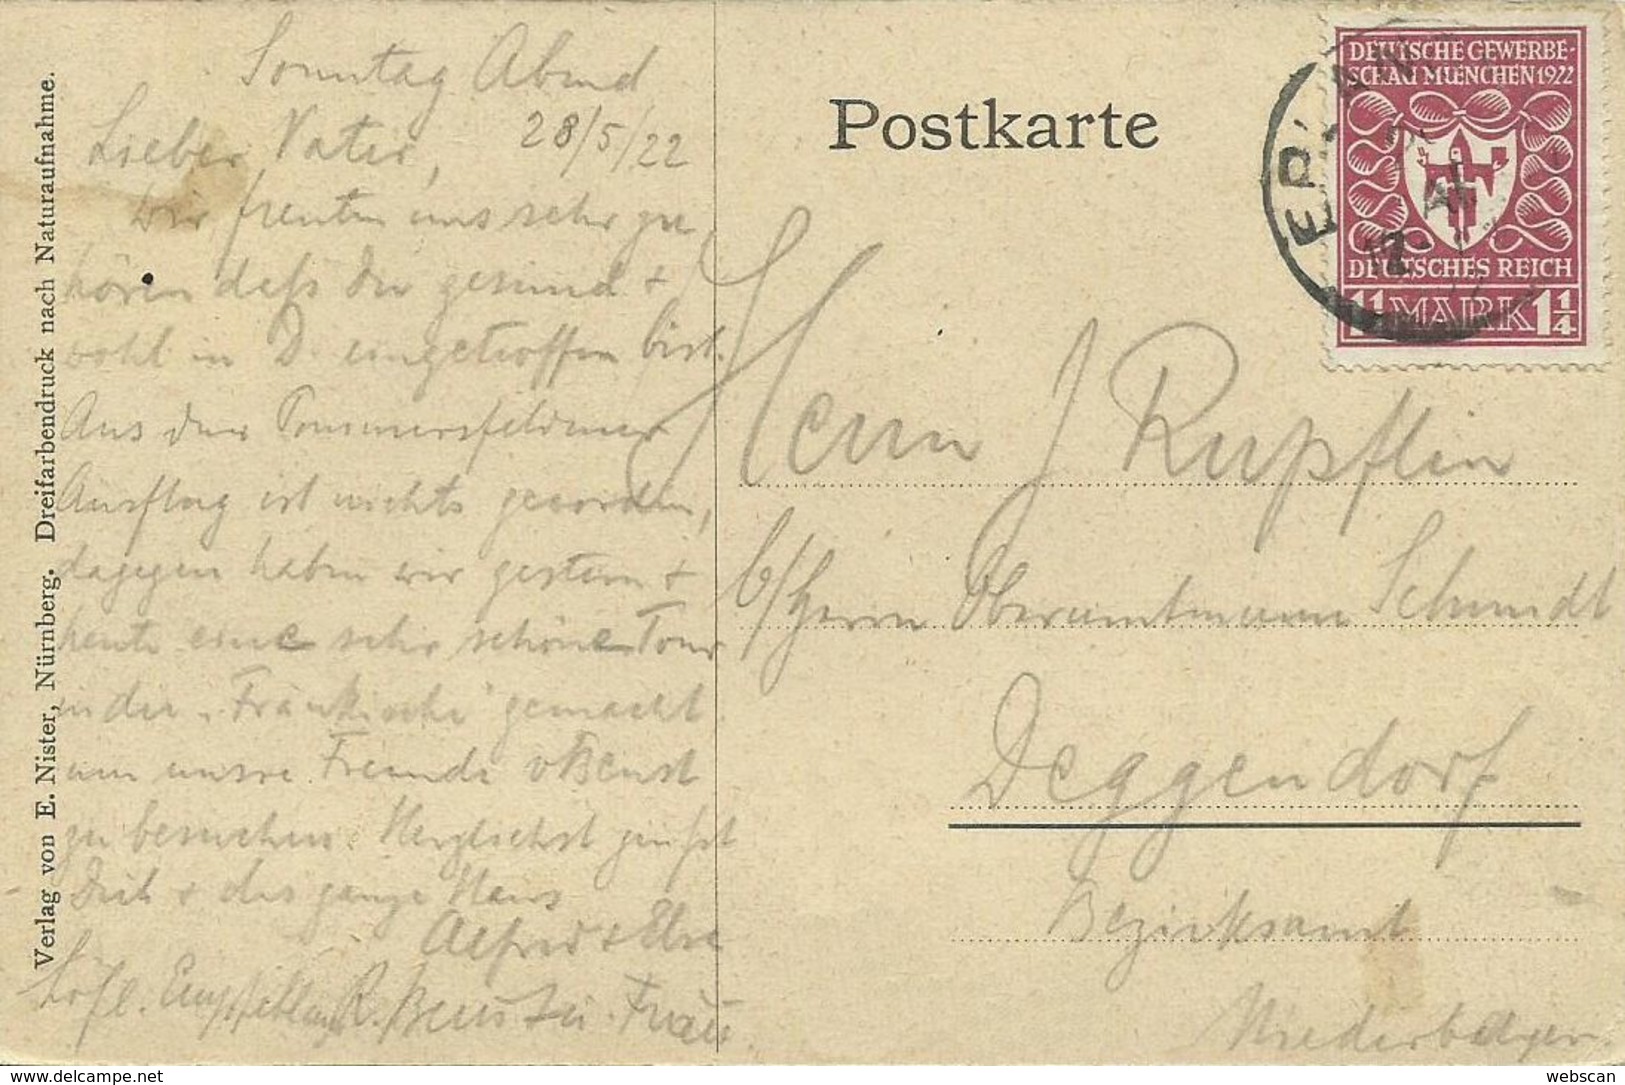 Sonntag Abend
28/5/22
Lieber Vater,
Wir freuten uns sehr zu
hören daß Du gesund +
wohl in D. eingetroffen bist.
Aus dem Pommersfeldener
Ausflug ist nichts geworden,
dagegen haben wir gestern +
heute eine sehr schöne Tour
in der „Fränkische" gemacht
um unsre Freunde
zu besuchen. Herzlichst grüßt
Dich + das ganze Haus
Alfred + Else
Höfl. Empfehlung R. u. Frau
Verlag von E. Nister, Nürnberg. Dreifarbendruck nach Naturaufnahme.
Postkarte
DEUTSCHE GEWERBE-
SCHAU MUENCHEN 1922
DEUTSCHES REICH
1¼ MARK 1¼
ERLANGEN
Herrn J Rupflin
b/Herrn Oberamtmann Schmidt
Deggendorf
Bezirksamt
Niederbayern.
www.delcampe.net
webscan